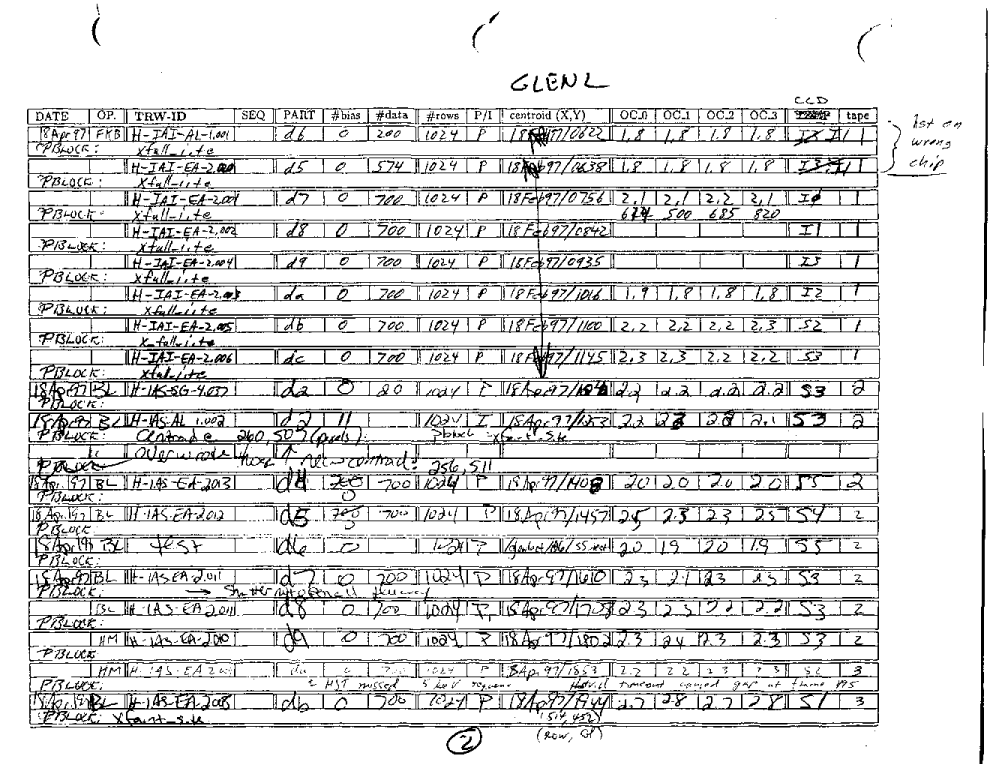 GLENL
CCD
DATE OP. TRW-ID SEQ PART #bias #data #rows P/I centroid (X,Y) OC.0 OC.1 OC.2 OC.3 tape
18Apr97 FKB H-IAI-AL-1.001 d6 0 200 1024 P 0622 1.8 1.8 1.8 1.8 1
1st on wrong chip
PBLOCK: xfull_i.te
H-IAI-EA-2.000 d5 0 574 1024 P 0638 1.8 1.8 1.8 1.8 1
PBLOCK: xfull_i.te
H-IAI-EA-2.001 d7 0 700 1024 P 18Feb97/0756 2.1 2.1 2.2 2.1 I0 1
PBLOCK: xfull_i.te 674 500 685 820
H-IAI-EA-2.002 d8 0 700 1024 P 18Feb97/0842 I1 1
PBLOCK: xfull_i.te
H-IAI-EA-2.004 d9 0 700 1024 P 18Feb97/0935 I3 1
PBLOCK: xfull_i.te
H-IAI-EA-2.003 da 0 700 1024 P 18Feb97/1016 1.9 1.8 1.8 1.8 I2 1
PBLOCK: xfull_i.te
H-IAI-EA-2.005 db 0 700 1024 P 18Feb97/1100 2.2 2.2 2.2 2.3 S2 1
PBLOCK: xfull_i.te
H-IAI-EA-2.006 dc 0 700 1024 P 18Feb97/1145 2.3 2.3 2.2 2.2 S3 1
PBLOCK: xfull_i.te
18Apr97 BL H-IAS-SG-4.037 d2 0 20 1024 P 2.2 2.2 2.2 2.2 S3 2
PBLOCK:
18Apr97 BL H-IAS-AL 1.002 d2 11 1024 I 18Apr97/1253 2.2 2.1 S3 2
PBLOCK: 260, 507 (pixels) pblock
overwrote these ↑ new centroid: 256, 511
PBLOCK
18Apr 97 BL H-IAS-EA-2013 d4 0 700 1024 P 18Apr97 2.0 2.0 2.0 2.0 S5 2
PBLOCK:
18Apr 97 BL H-IAS-EA-2012 d5 0 700 1024 P 18Apr97/1457 2.5 2.3 2.3 2.5 S4 2
PBLOCK
18Apr97 BL test d6 0 1024 P 2.0 1.9 2.0 1.9 S5 2
PBLOCK:
18Apr97 BL H-IAS-EA-2.011 d7 0 700 1024 P 18Apr97/1610 2.3 2.1 2.3 2.3 S3 2
PBLOCK: →
BL H-IAS-EA 2.011 d8 0 700 1024 P 18Apr97/1708 2.3 2.3 2.2 2.2 S3 2
PBLOCK:
HM H-IAS-EA-2010 d9 0 700 1024 P 18Apr97/1802 2.3 2.4 2.3 2.3 S3 2
PBLOCK
HM H-IAS-EA da 0 1024 P 18Apr97/1853 2.2 2.2 2.3 2.3 S2 3
PBLOCK: HST missed 5 keV timeout caused gap at frame 195
18Apr 97 BL H-IAS-EA-2008 db 0 700 1024 P 18Apr97/1944 2.7 2.8 2.7 2.8 S1 3
PBLOCK: xfaint_s.te (514, 452)
(row, col)
2